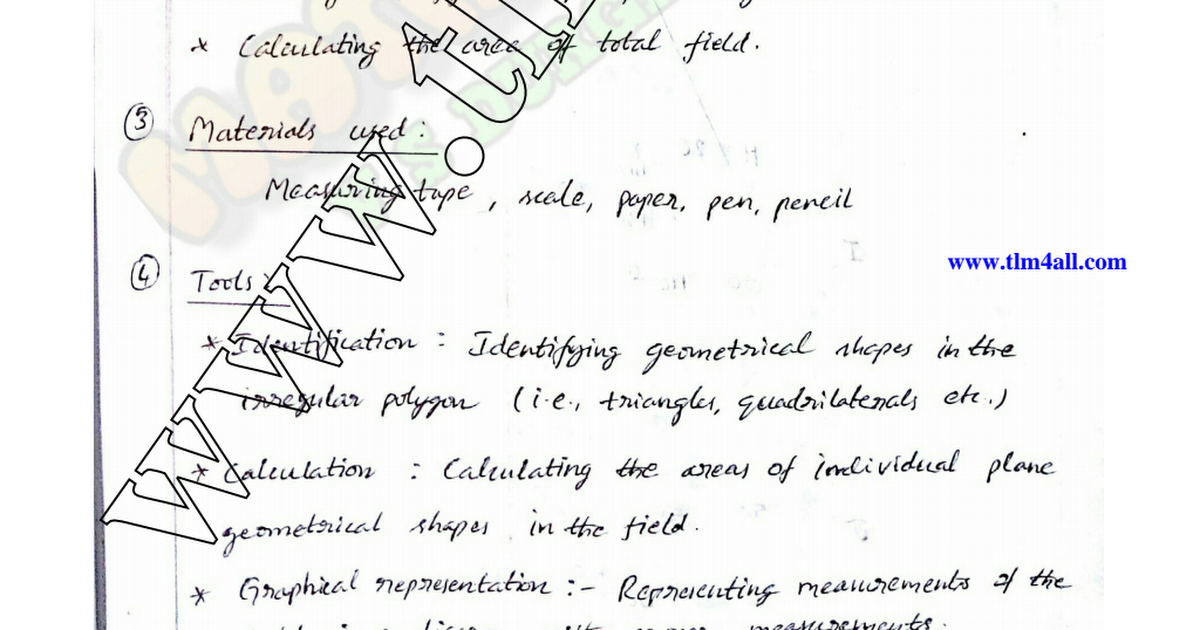 * Calculating the area of total field.
③ Materials used :
Measuring tape , scale, paper, pen, pencil
www.tlm4all.com
④ Tools :
* Identification : Identifying geometrical shapes in the
irregular polygon (i.e., triangles, quadrilaterals etc.)
* Calculation : Calculating the areas of individual plane
geometrical shapes in the field.
* Graphical representation :- Representing measurements of the
measurements.